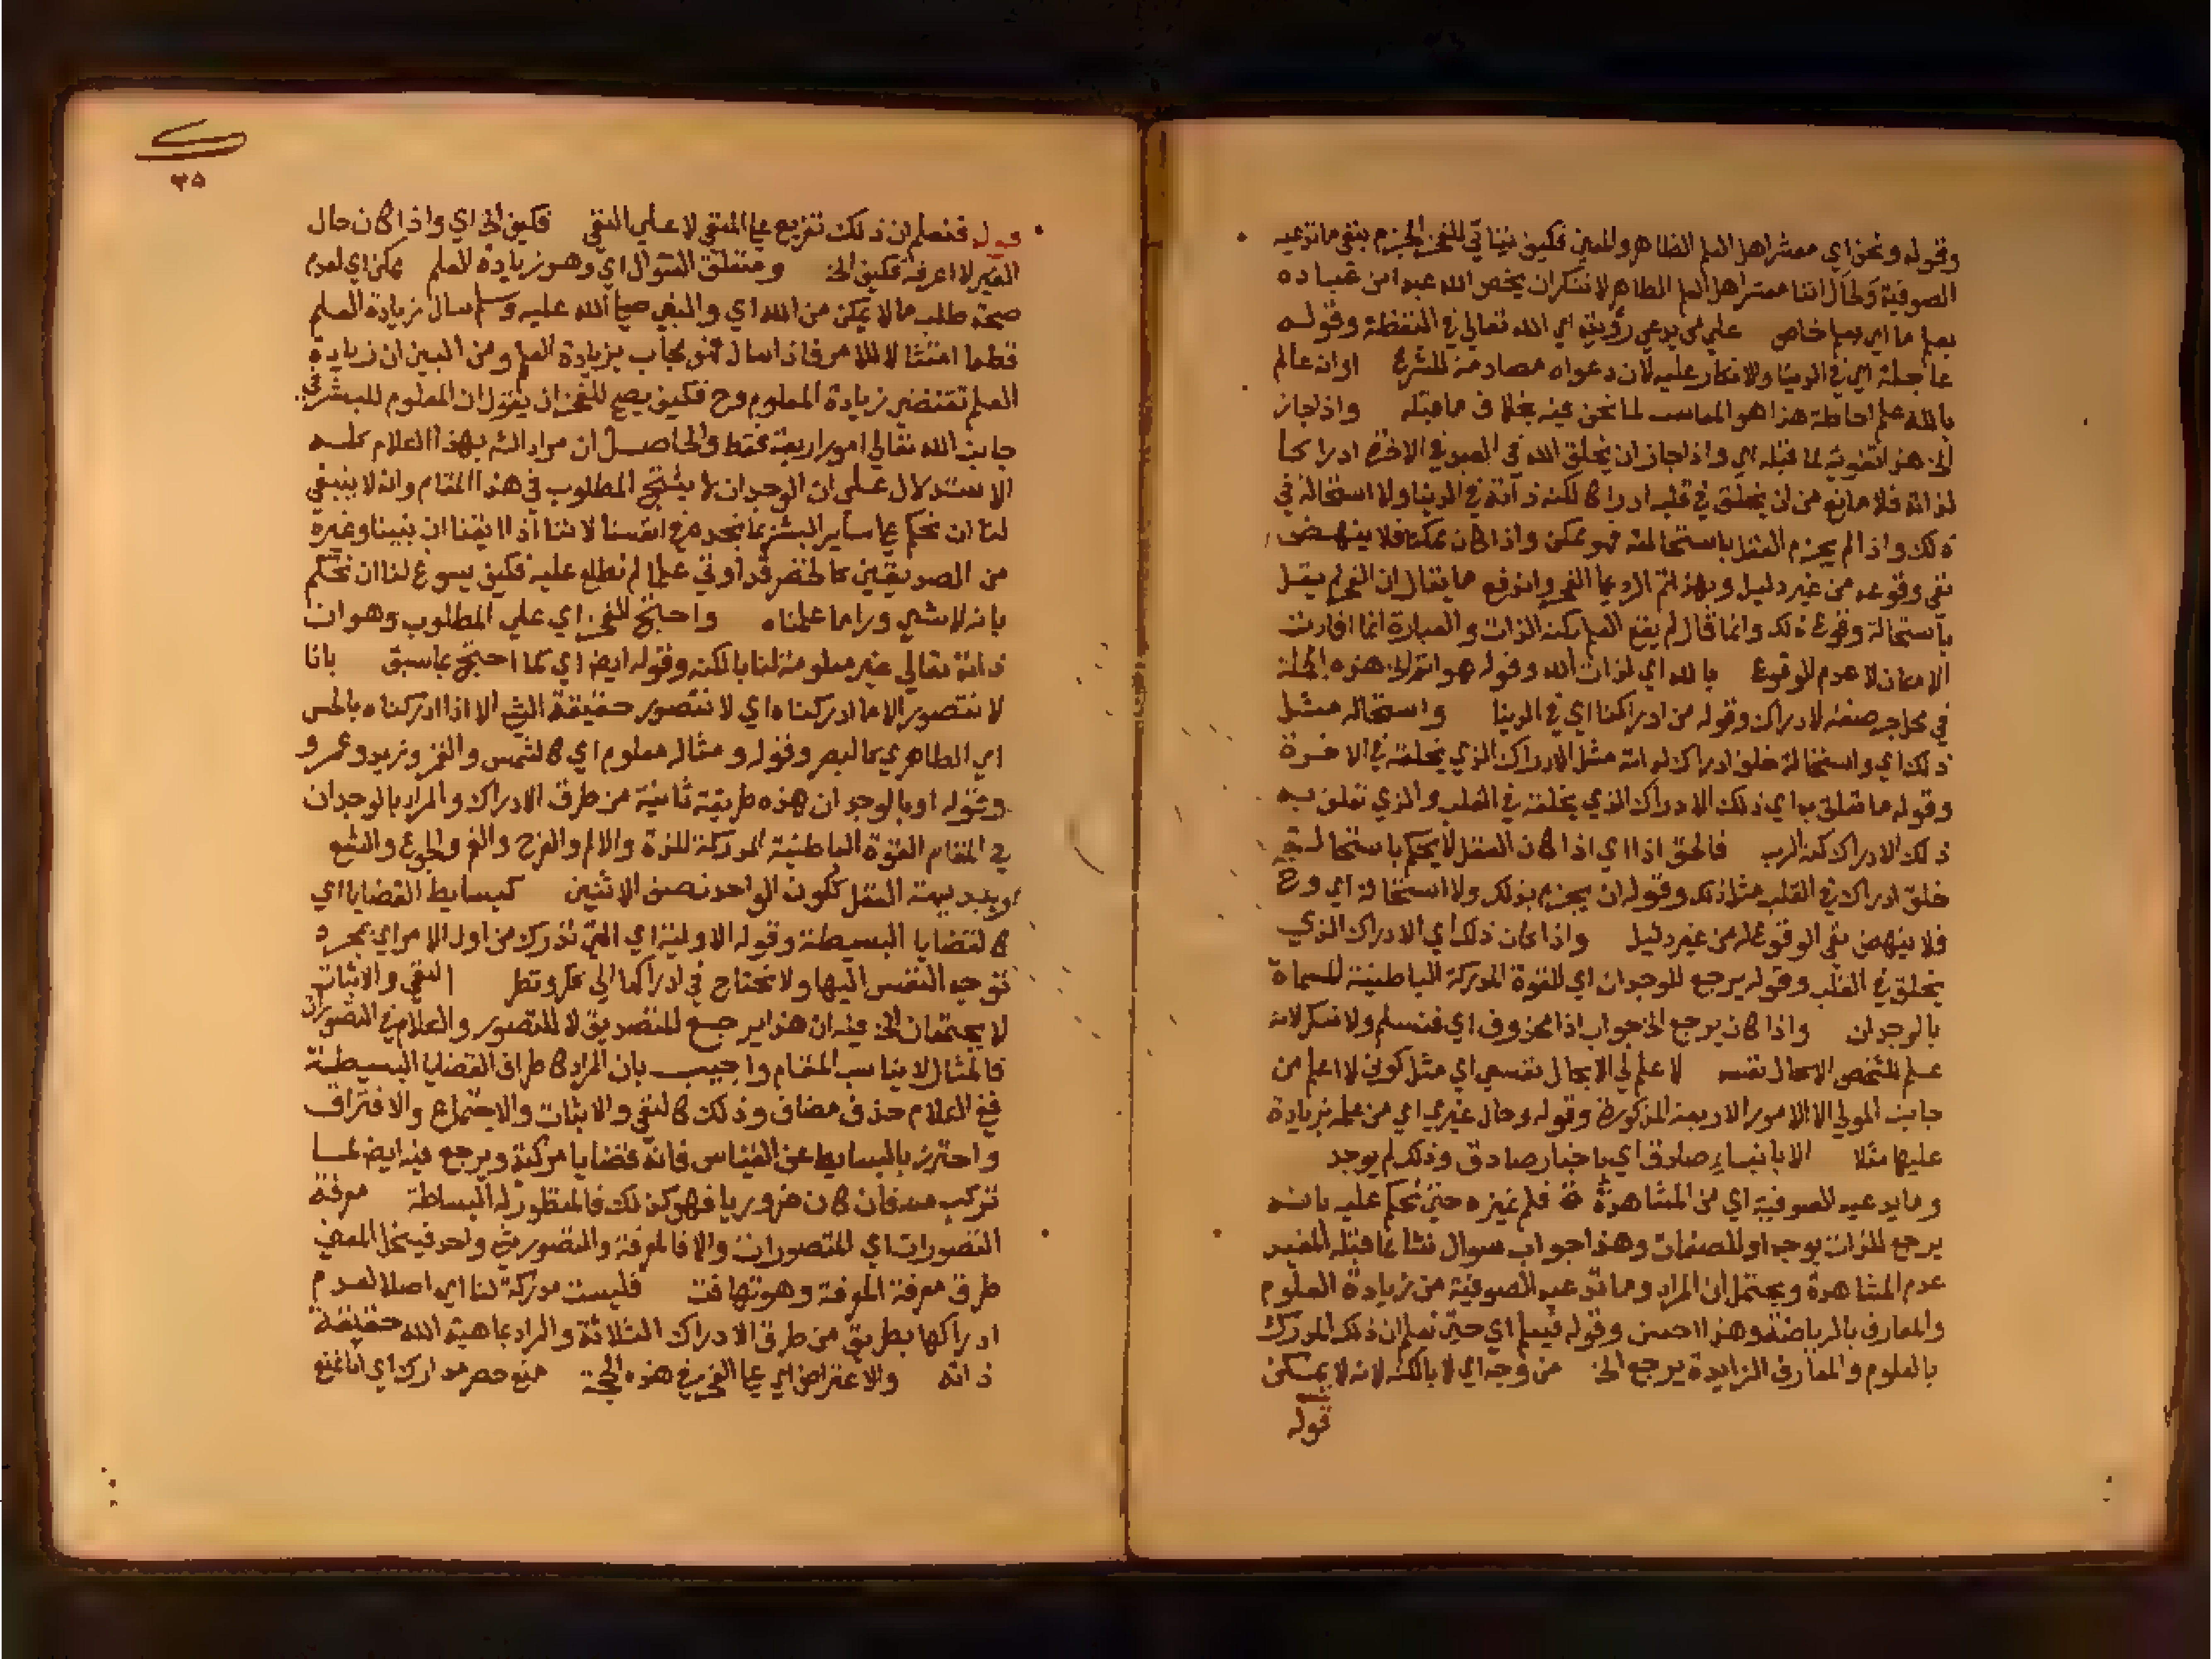 وقوله ونحن اي معشر اهل العلم الظاهر والمعني فكيف يتأتي للفخر الجزم بنفي ما تدعيه
الصوفية والحال اننا معشر اهل العلم الظاهر لا ننكر ان يخص الله عبدا من عباده
بعلم ما اي بعلم خاص علي من يدعي رؤيته اي الله تعالي في اليقظة وقوله
عاجلة اي في الدنيا والانكار عليه لان دعواه مصادمة للشرع او انه عالم
بالله علم احاطة هذا هو المناسب لما نحن فيه بخلاف ما قبله واذ اجاز
الخ هذا تقوية لما قبله اي واذا جاز ان يخلق الله في العيون في الاخرة ادراكا
لذاته فلا مانع من ان يخلق في قلبه ادراكا لكنه ذاته في الدنيا ولا استحالة في
ذلك واذا لم يجزم العقل باستحالته فهو ممكن واذا كان ممكنا فلا ينهض
نفي وقوعه من غير دليل وبهذا تم الرد علي الفخر واندفع ما يقال ان الفخر لم يقل
باستحالة وقوع ذلك وانما قال لم يقع العلم بكنه الذات والعبارة انما افادت
الامكان لا عدم الوقوع بالله اي لذات الله وقوله هو اتم الخ هذه الجملة
في محل جر صفة لادراك وقوله من ادراكنا اي في الدنيا واستحالة مثل
ذلك اي واستحالة خلق ادراك لذاته مثل الادراك الذي يخلقه في الاخرة
وقوله ما تعلق به اي ذلك الادراك الذي يخلقه في القلب والذي تعلق به
ذلك الادراك كنه الرب فالحق اذا اي اذا كان العقل لا يحكم باستحالة
خلق ادراك في القلب مثل ذلك وقوله ان يجزم بذلك ولا استحالة اي وح
فلا ينهض نفي الوقوع له من غير دليل واذا كان ذلك اي الادراك الذي
يخلق في القلب وقوله يرجع للوجدان اي للقوة المدركة الباطنية المسماة
بالوجدان واذا كان يرجع الخ جواب اذا محذوف اي فنسلم ولا ننكر لانه
علم للشخص الا بحال نفسه لا علم لي الا بحال نفسي اي مثل كوني لا اعلم من
جانب المولي الا الامور الاربعة المذكورة وقوله وحال غيري اي من علمه بزيادة
عليها مثلا الا بانباء صادق اي باخبار صادق وذلك لم يوجد
وما يدعيه الصوفية اي من المشاهدة فلم نميزه حتي نحكم عليه بانه
يرجع للذات بوجه او للصفات وهذا جواب سوال نشا عما قبله المفيد
عدم المشاهدة ويحتمل ان المراد وما تدعيه الصوفية من زيادة العلوم
والمعارف بالرياضة وهذا احسن وقوله فيعلم اي حتي نعلم ان ذلك المدرك
بالعلوم والمعارف الزايدة يرجع الخ من وجه اي لا بالكنه لانه لا يمكن
قوله
٢٥
قوله فنعلم ان ذلك تفريع علي المنفي لا علي النفي فكيف الخ اي واذا كان حال
الغير لا اعرفه فكيف الخ ومتعلق السوال اي وهو زيادة العلم يمكن اي لعدم
صحة طلب ما لا يمكن من الله اي والنبي صلي الله عليه وسلم سال زيادة العلم
قطعا امتثالا للامر فاذا سال فهو يجاب بزيادة العلم ومن البين ان زيادة
العلم تقتضي زيادة المعلوم وح فكيف يصح للفخر ان يقول ان المعلوم للبشر في
جانب الله تعالي امور اربعة فقط والحاصل ان مراد الش بهذا الكلام كله
الاستدلال علي ان الوجدان لا ينتج المطلوب في هذا المقام وانه لا ينبغي
لنا ان نحكم علي ساير البشر بما نجده من انفسنا لاننا اذا ايقنا ان نبينا وغيره
من الصديقين كالخضر قد اوتي علما لم نطلع عليه فكيف يسوغ لنا ان نحكم
بانه لا شي ورا ما علمناه واحتج الفخر اي علي المطلوب وهو ان
ذاته تعالي غير معلومة لنا بالكنه وقوله ايض اي كما احتج بما سبق بانا
لا نتصور الا ما ادركناه اي لا نتصور حقيقة الشي الا اذا ادركناه بالحس
اي الظاهري كالبصر وقوله ومثاله معلوم اي كالشمس والقمر وزيد وعمرو
وقوله او بالوجدان هذه طريقة ثانية من طرق الادراك والمراد بالوجدان
في المقام القوة الباطنية المدركة للذة والالم والفرح والغم والجوع والشبع
او ببديهة العقل ككون الواحد نصف الاثنين كبسايط القضايا اي
كالقضايا البسيطة وقوله الاولية اي التي تدرك من اول الامر اي بمجرد
توجه النفس اليها ولا تحتاج في ادراكها الي فكر ونظر النفي والاثبات
لا يجتمعان الخ فيه ان هذا يرجع للتصديق لا للتصور والكلام في التصورات
فالمثال لا يناسب المقام واجيب بان المراد كاطراف القضايا البسيطة
ففي الكلام حذف مضاف وذلك كالنفي والاثبات والاجتماع والافتراق
واحترز بالبسايط عن القياس فانه قضايا مركبة ويرجع فيه ايض لما
تركب منه فان كان ضروريا فهو كذلك فالمنظور له البساطة معرفة
التصورات اي المتصورات والا فالمعرفة والتصور شي واحد فينحل المعني
طرق معرفة المعرفة وهو تهافت فليست مدركة لنا اي اصلا لعدم
ادراكها بطريق من طرق الادراك الثلاثة والمراد بماهية الله حقيقة
ذاته والاعتراض اي علي الفخر في هذه الحجة منع حصر مدارك اي انا نمنع